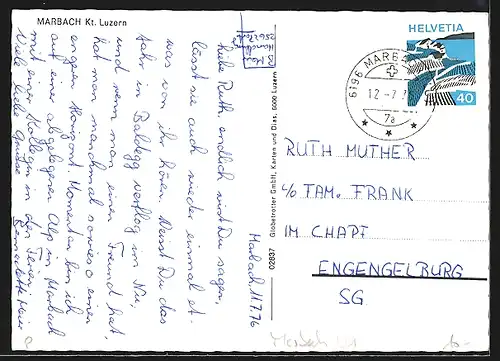 MARBACH Kt. Luzern
Marbach, 11.7.76
Liebe Ruth, endlich wirst Du sagen,
lässt sie auch wieder einmal et-
was von ihr hören. Weisst Du das
Jahr in Baldegg verflog im Nu,
und wenn man einen Freund hat,
hat man manchmal sowieso einen
engeren Horizont. Momentan bin ich
auf einer abgelegenen Alp in Marbach
mit einer Kollegin in den Ferien.
Viele liebe Grüsse Bernadette Meier
B. Meier
02837 Globetrotter GmbH, Karten und Dias, 6000 Luzern
HELVETIA
40
6196 MARBACH
12.-7.
7a
RUTH MUTHER
c/o FAM. FRANK
IM CHAPF
ENGENGELBURG
SG